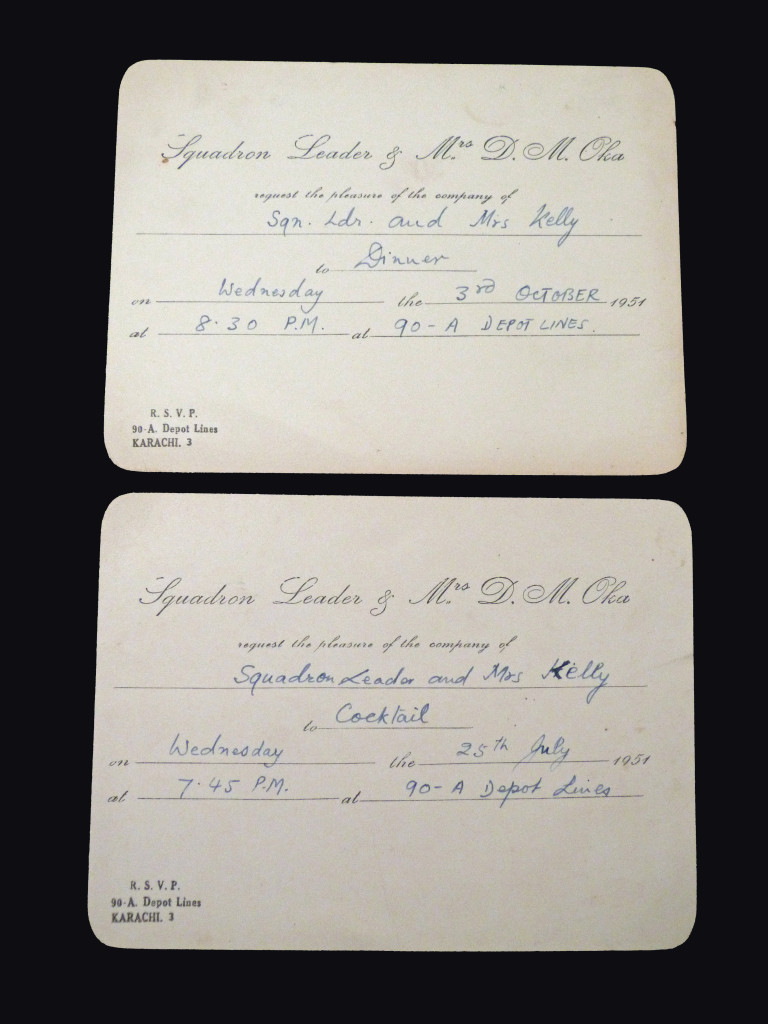 Squadron Leader & Mrs D. M. Oka
request the pleasure of the company of
Sqn. Ldr. and Mrs Kelly
to Dinner
on Wednesday the 3rd OCTOBER 1951
at 8.30 P.M. at 90-A DEPOT LINES.
R. S. V. P.
90-A. Depot Lines
KARACHI. 3
Squadron Leader & Mrs D. M. Oka
request the pleasure of the company of
Squadron Leader and Mrs Kelly
to Cocktail
on Wednesday the 25th July 1951
at 7.45 P.M. at 90-A Depot Lines
R. S. V. P.
90-A. Depot Lines
KARACHI. 3